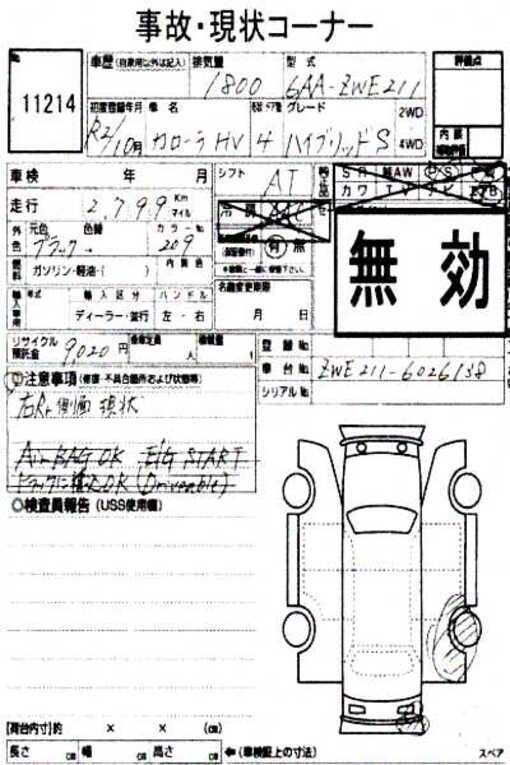 事故・現状コーナー
№ 11214
車歴 (自家用以外は記入) 排気量 型式 評価点
1800 6AA-ZWE211
初度登録年月 車名 ドア数 グレード 2WD
R2/10月 カローラHV 4 ハイブリッドS 4WD
内装
車検 年 月 シフト AT
SR 純AW PS PW
カワ TV ナビ エアB
走行 2,799 Km マイル
冷房 AAC
外色 元色 色替 カラー№
ブラック → 209
有・無
無効
燃料 ガソリン・軽油・( ) 内装色
名義変更期限
月 日
輸入車用 年式 輸入区分 ハンドル
ディーラー・並行 左・右
リサイクル預託金 9020円 乗車定員 人 積載量 t
登録№
車台№ ZWE211-6026138
シリアル№
注意事項 (修復・不具合箇所および状態等)
右Rr側面 現状
Air BAG OK E/G START
トラックに積込OK (Driveable)
検査員報告 (USS使用欄)
[荷台内寸]約 × × (㎝)
長さ ㎝ 幅 ㎝ 高さ ㎝ ←(車検証上の寸法) スペア